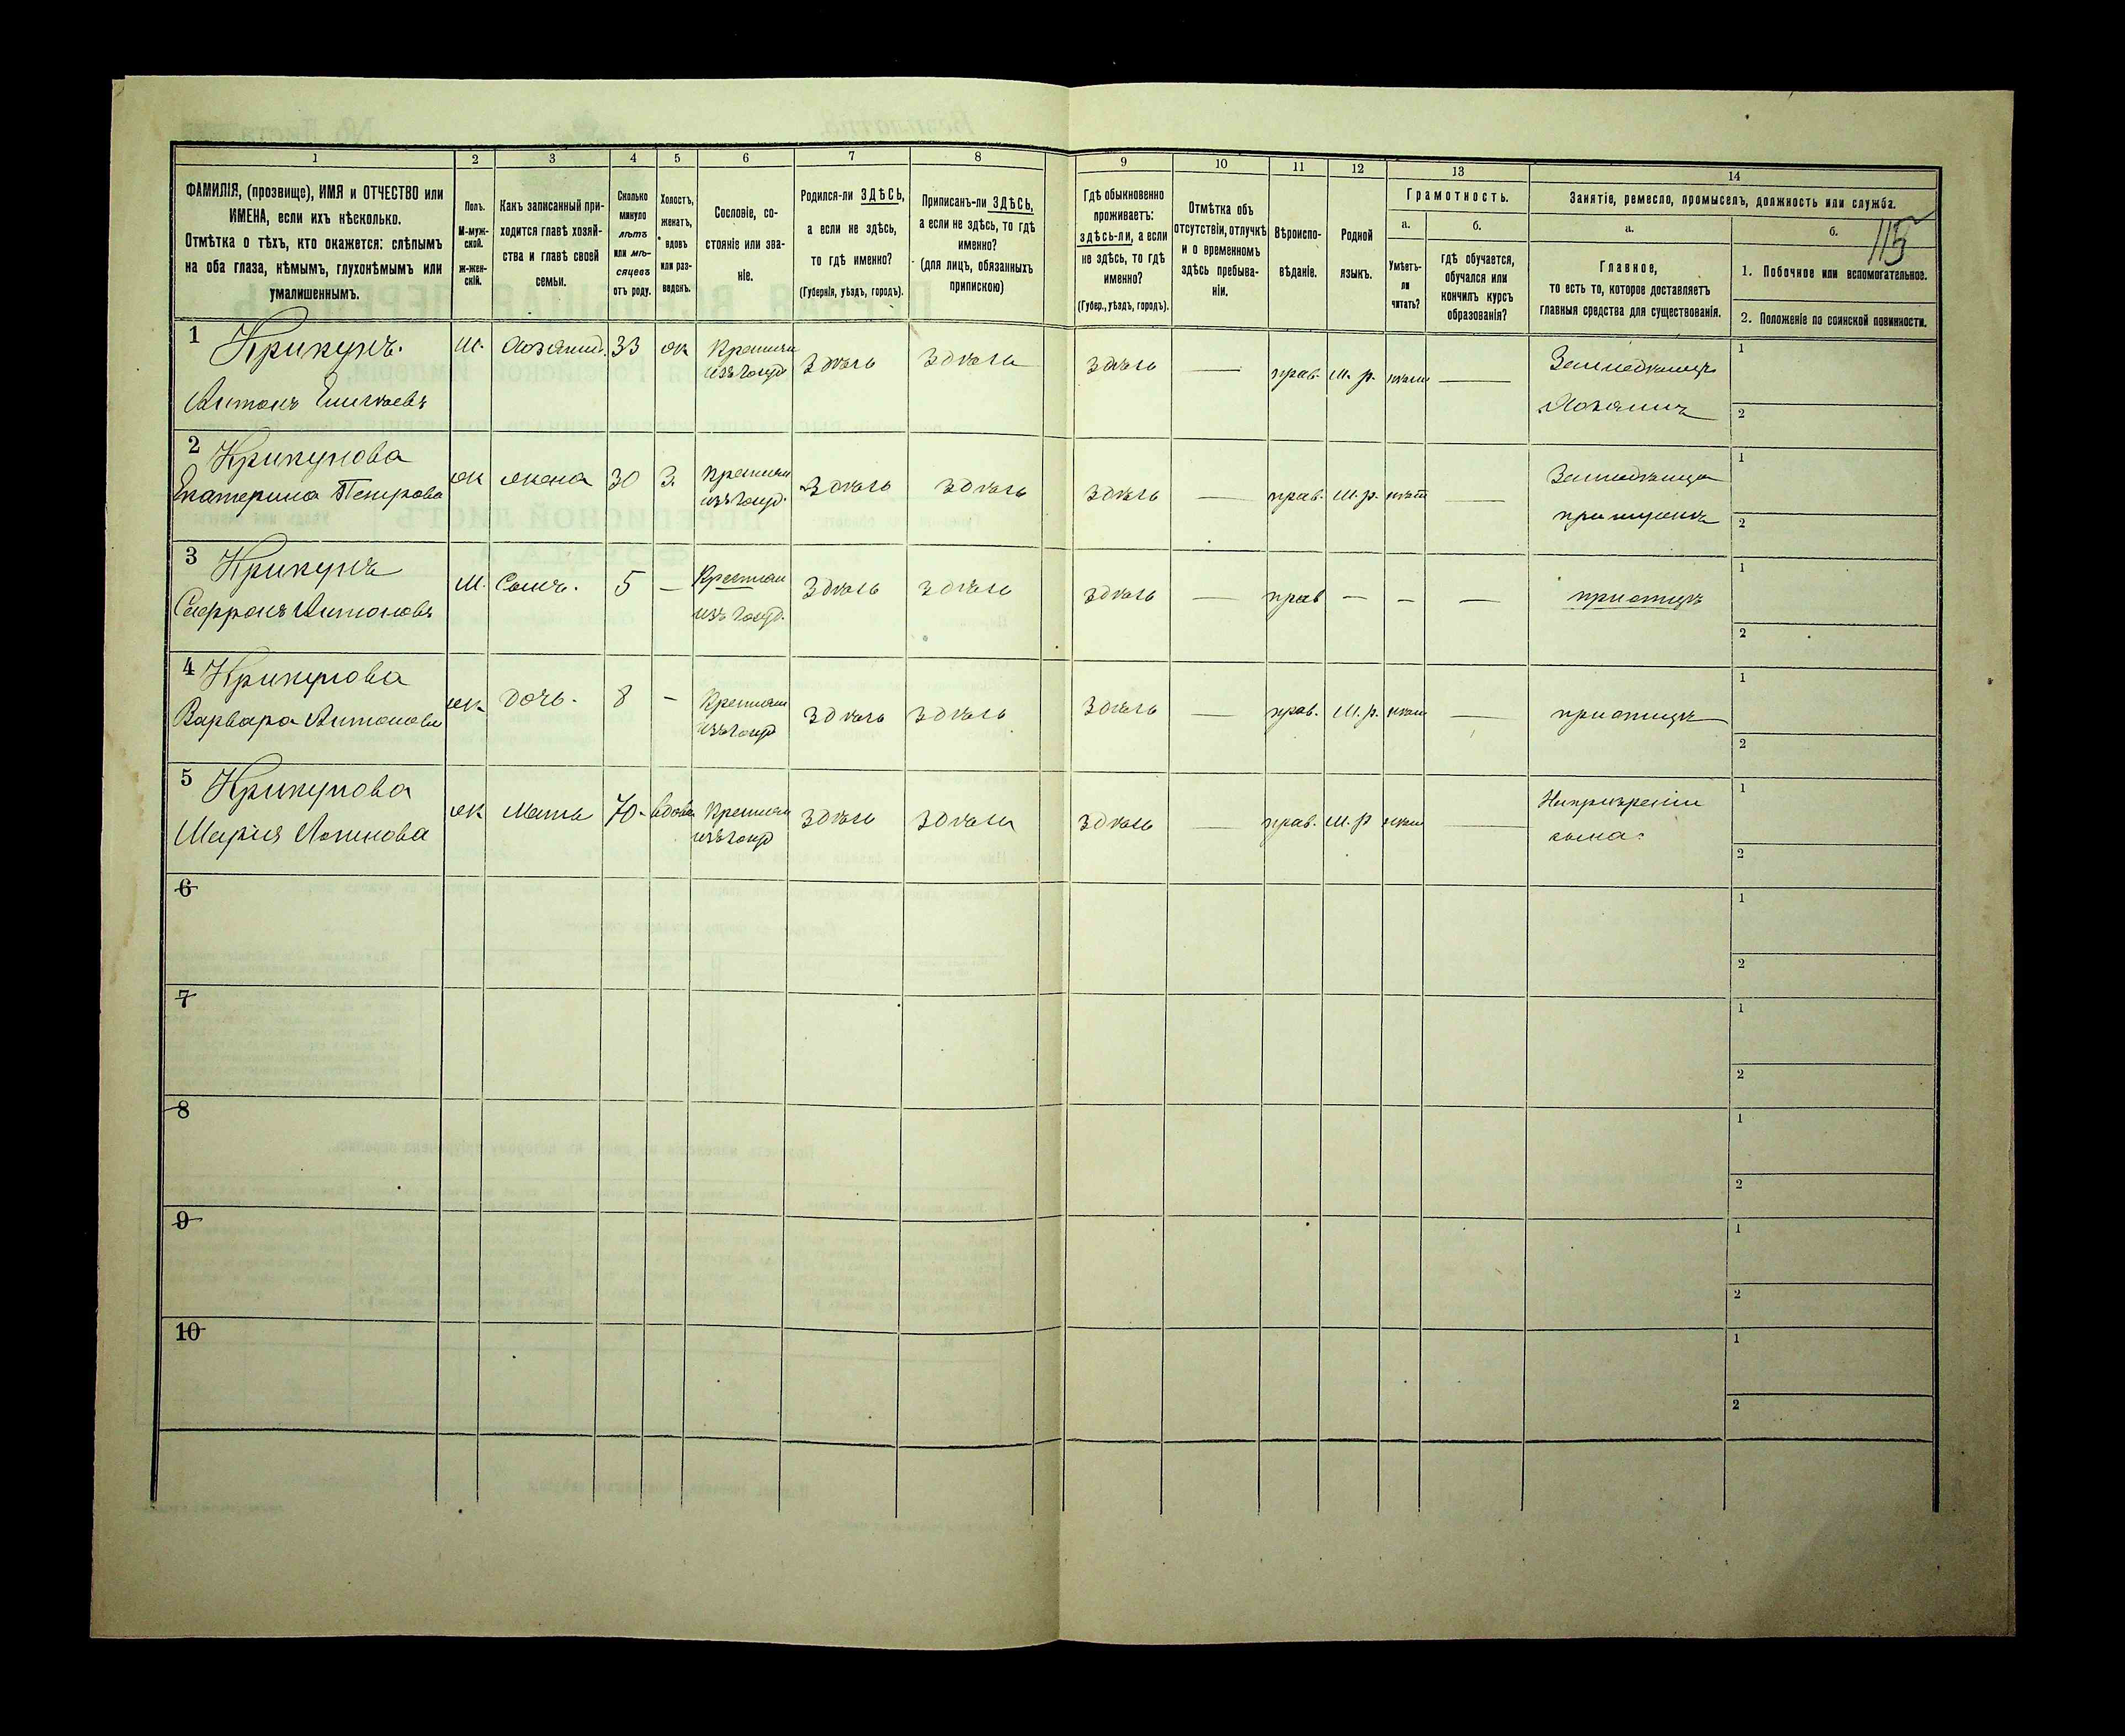 1 2 3 4 5 6 7 8 9 10 11 12 13 14
ФАМИЛІЯ, (прозвище), ИМЯ и ОТЧЕСТВО или
ИМЕНА, если ихъ нѣсколько.
Отмѣтка о тѣхъ, кто окажется: слѣпымъ
на оба глаза, нѣмымъ, глухонѣмымъ или
умалишеннымъ.
Полъ.
М-муж-
ской.
Ж-жен-
скій.
Какъ записанный при-
ходится главѣ хозяй-
ства и главѣ своей
семьи.
Сколько
минуло
лѣтъ
или мѣ-
сяцевъ
отъ роду.
Холостъ,
женатъ,
вдовъ
или раз-
веденъ.
Сословіе, со-
стояніе или зва-
ніе.
Родился-ли ЗДѢСЬ,
а если не здѣсь,
то гдѣ именно?
(Губернія, уѣздъ, городъ).
Приписанъ-ли ЗДѢСЬ,
а если не здѣсь, то гдѣ
именно?
(для лицъ, обязанныхъ
припискою)
Гдѣ обыкновенно
проживаетъ:
здѣсь-ли, а если
не здѣсь, то гдѣ
именно?
(Губер., уѣздъ, городъ).
Отмѣтка объ
отсутствіи, отлучкѣ
и о временномъ
здѣсь пребыва-
ніи.
Вѣроиспо-
вѣданіе.
Родной
языкъ.
Грамотность.
а.
Умѣетъ-
ли
читать?
б.
гдѣ обучается,
обучался или
кончилъ курсъ
образованія?
Занятіе, ремесло, промыселъ, должность или служба.
115
а.
Главное,
то есть то, которое доставляетъ
главныя средства для существованія.
б.
1. Побочное или вспомогательное.
2. Положеніе по воинской повинности.
1 Крикунъ. М. хозяинъ. 33 ж Крестьян здѣсь здѣсь здѣсь — прав. м. р. — 1
Антонъ изъ 2
2 Крикунова
Екатерина Петрова ж жена 30 З. Крестьян здѣсь здѣсь здѣсь — прав. м. р. нѣт — 1
2
3 Крикунъ
Сафронъ Антоновъ М. Сынъ. 5 — Крестьян здѣсь здѣсь здѣсь — прав — — — при отцѣ 1
2
4 Крикунова
Варвара Антонова ж дочь. 8 — Крестьян здѣсь здѣсь здѣсь — прав. м. р. — при отцѣ 1
2
5 Крикунова
Марія ж Мать 70. вдова Крестьян здѣсь здѣсь здѣсь — прав. м. р — На призреніи 1
сына. 2
6 1
2
7 1
2
8 1
2
9 1
2
10 1
2